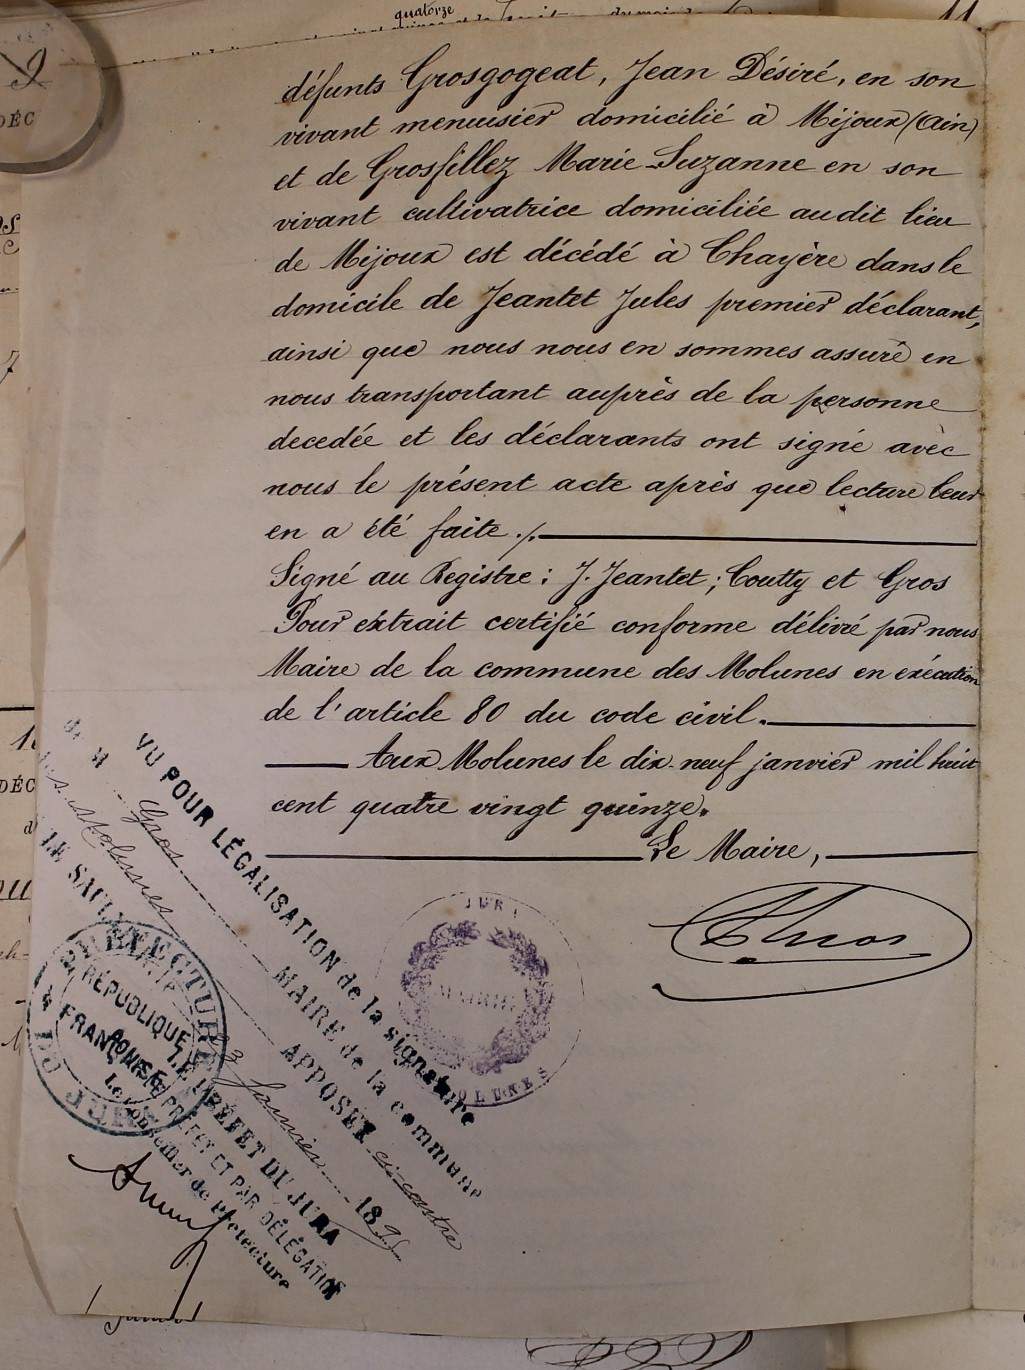 quatorze
11
défunts Grosgogeat, Jean Désiré, en son
vivant menuisier domicilié à Mijoux (Ain)
et de Grosfillez Marie-Suzanne en son
vivant cultivatrice domiciliée audit lieu
de Mijoux est décédé à Chayère dans le
domicile de Jeantet Jules premier déclarant,
ainsi que nous nous en sommes assuré en
nous transportant auprès de la personne
decedée et les déclarants ont signé avec
nous le présent acte après que lecture leur
en a été faite ./.
Signé au Registre : J. Jeantet ; Coutty et Gros
Pour extrait certifié conforme délivré par nous
Maire de la commune des Molunes en exécution
de l'article 80 du code civil.
Aux Molunes le dix-neuf janvier mil huit
cent quatre vingt quinze.
Le Maire,
Gros
VU POUR LÉGALISATION de la signature
de M Gros MAIRE de la commune
des Molunes APPOSÉE ci-contre
LONS-LE-SAULNIER Janvier 18
LE PRÉFET DU JURA
POUR LE PRÉFET ET PAR DÉLÉGATION
Le Conseiller de Préfecture
PRÉFECTURE
RÉPUBLIQUE
FRANÇAISE
DU JURA
JURA
MAIRIE
MOLUNES
DÉC
DÉC